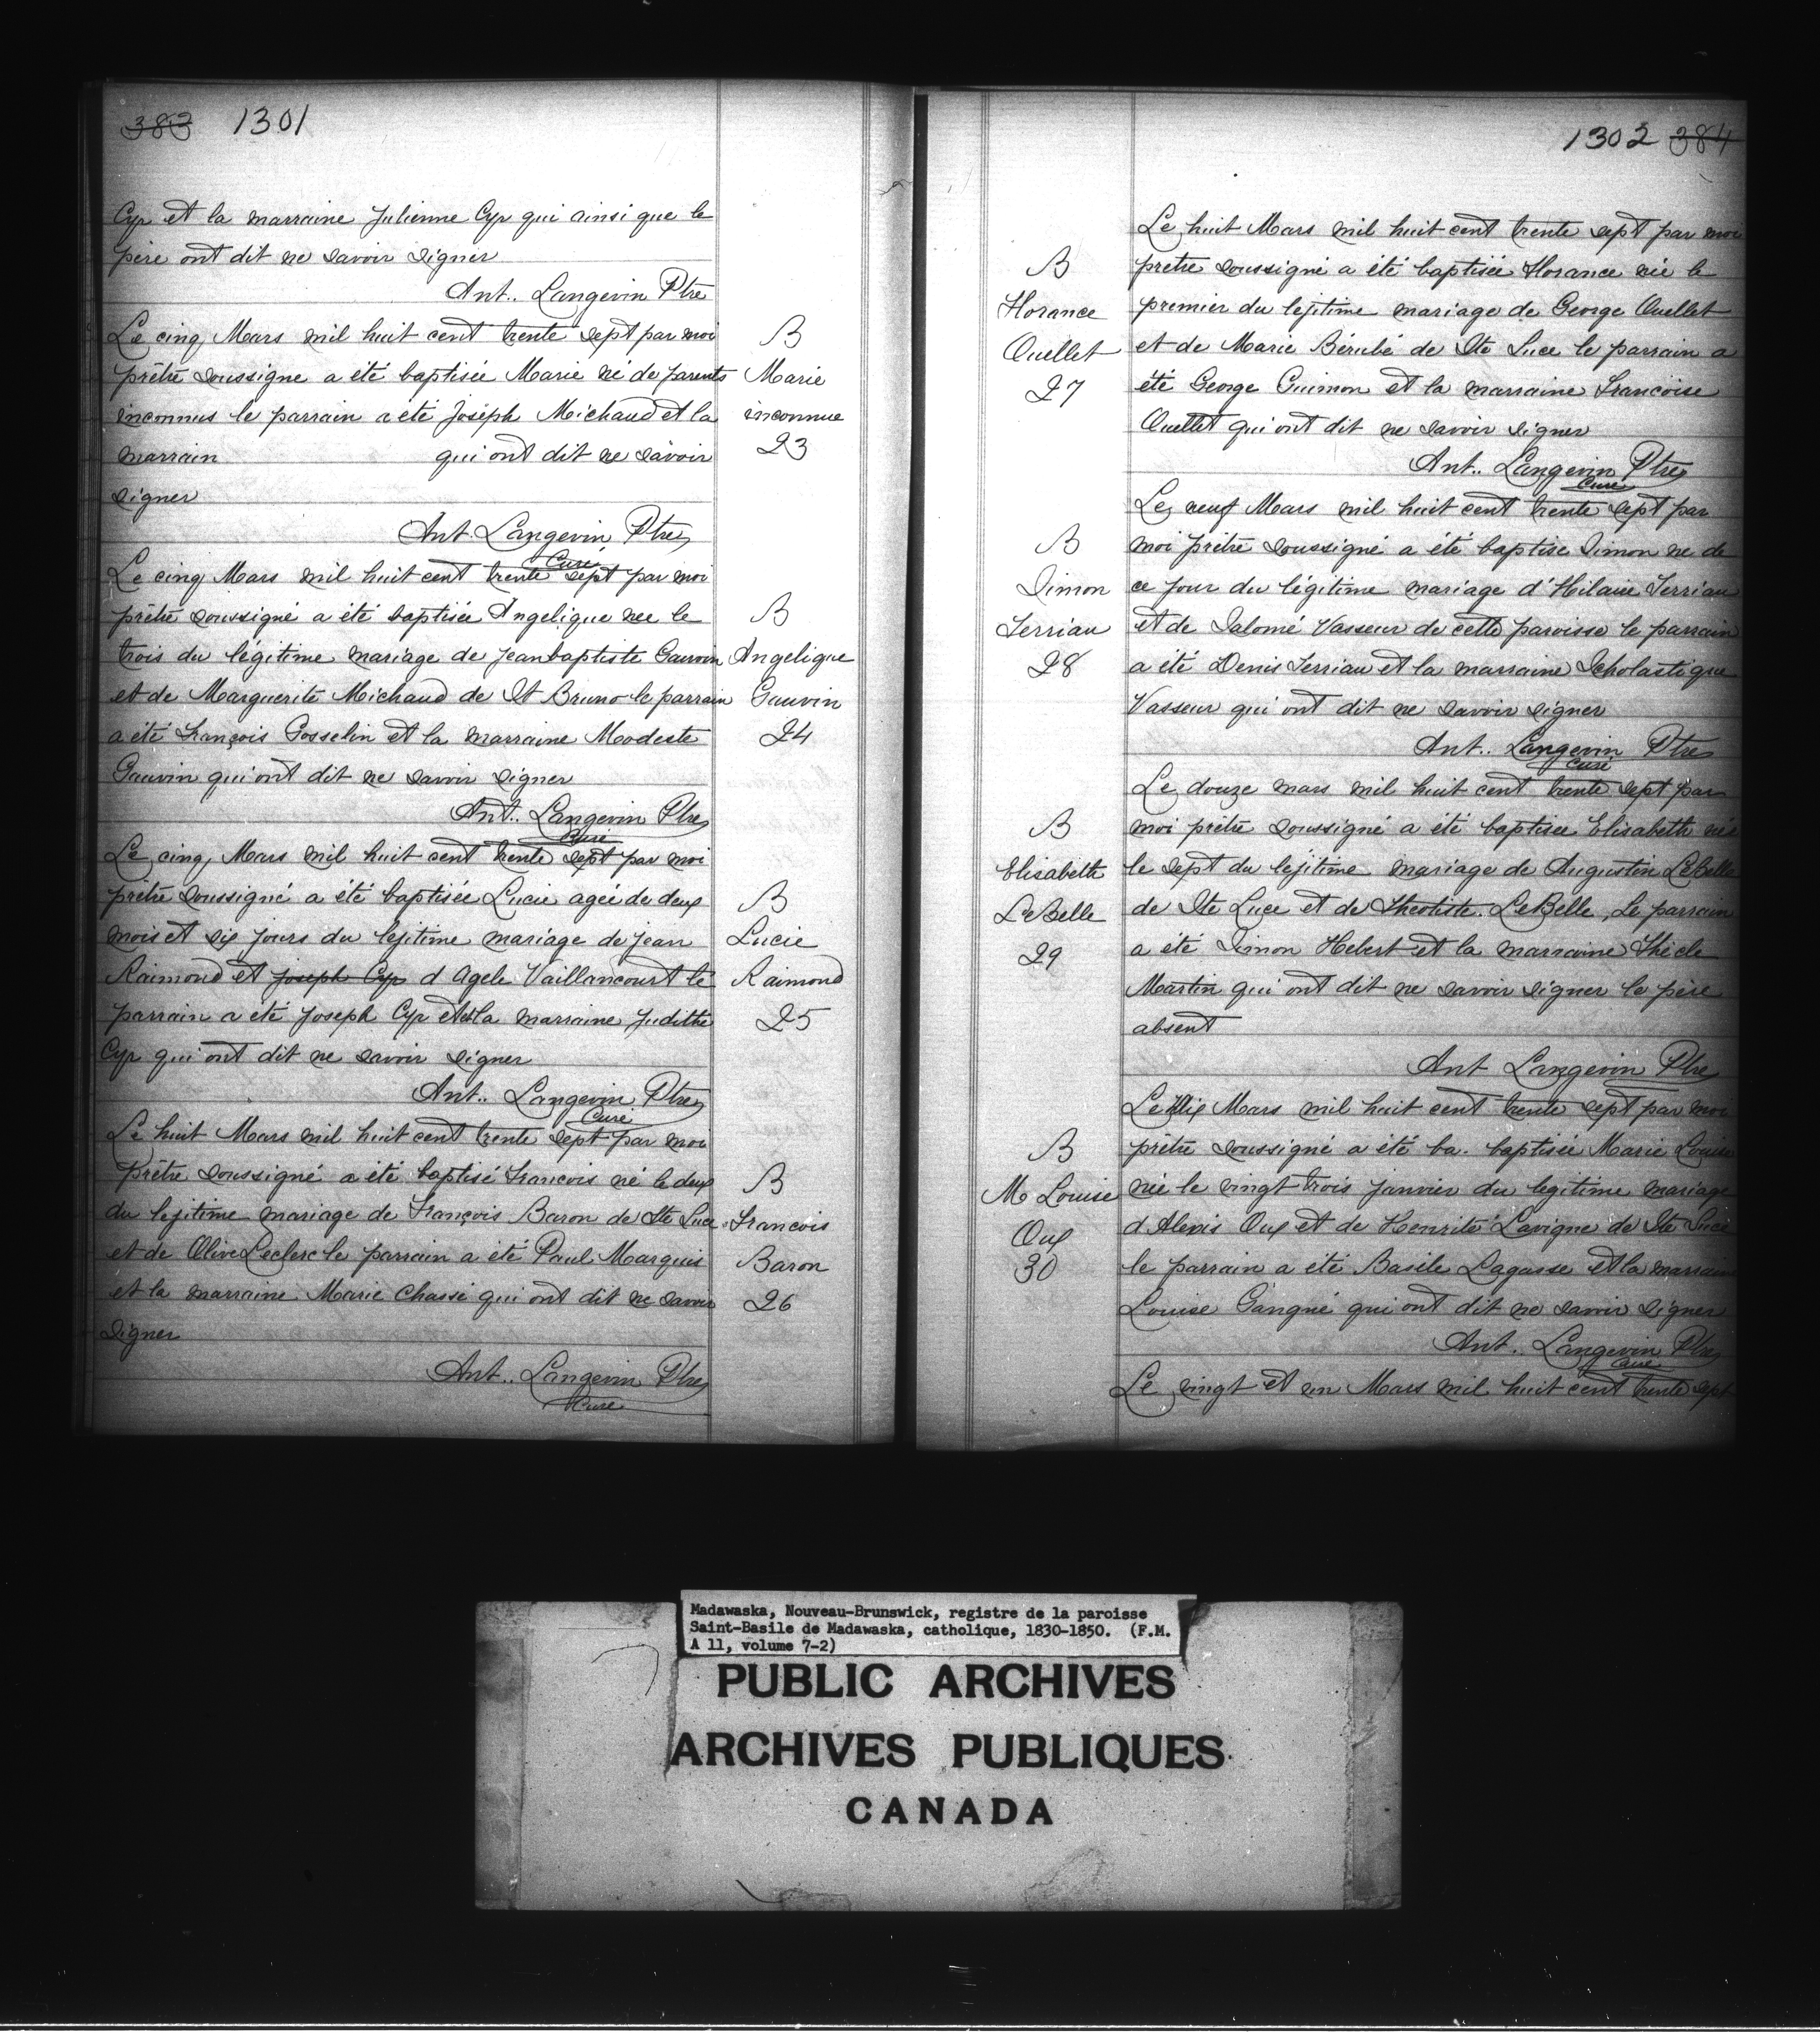 383 1301
Cyr et la marraine Julienne Cyr qui ainsi que le
père ont dit ne savoir signer
Ant.. Langevin Ptre
Le cinq Mars mil huit cent trente sept par moi
prêtre soussigne a été baptisée Marie né de parents
inconnus le parrain a été Joséph Michaud et la
marrain qui ont dit ne savoir
signer
Ant. Langevin Ptre
Curé
B
Marie
inconnue
23
Le cinq Mars mil huit cent trente sept par moi
prêtre soussigné a été baptisée Angelique nee le
trois du légitime mariage de Jeanbaptiste Gauvin
et de Marguerite Michaud de St Bruno le parrain
a été François Gosselin et la marraine Modeste
Gauvin qui ont dit ne savoir signer
Ant.. Langevin Ptre
Curé
B
Angelique
Gauvin
24
Le cinq Mars mil huit cent trente sept par moi
prêtre soussigné a été baptisée Lucie ageé de deux
mois et dix jours du lejitime mariage de Jean
Raimond et Joseph Cyr d Agele Vaillancourt le
parrain a été Joseph Cyr et la marraine Judithe
Cyr qui ont dit ne savoir signer
Ant.. Langevin Ptre
Curé
B
Lucie
Raimond
25
Le huit Mars mil huit cent trente sept par moi
Prêtre soussigné a été baptisé Francois né le deux
du lejitime mariage de François Baron de Ste Luce
et de Olive Leclerc le parrain a été Paul Marquis
et la marraine Marie Chassé qui ont dit ne savoir
signer
Ant.. Langevin Ptre
Curé
B
Francois
Baron
26
1302 384
Le huit Mars mil huit cent trente sept par moi
prêtre soussigné a été baptisée Horance née le
premier du lejitime mariage de George Ouellet
et de Marie Bérubé de Ste Luce le parrain a
été George Guimon et la marraine Francoise
Ouellet qui ont dit ne savoir signer
Ant.. Langevin Ptre
Curé
B
Horance
Ouellet
27
Le neuf Mars mil huit cent trente sept par
moi prêtre soussigné a été baptise Simon ne de
ce jour du légitime mariage d'Hilaire Terriau
et de Salomé Vasseur de cette paroisse le parrain
a été Denis Terriau et la marraine Scholastique
Vasseur qui ont dit ne savoir signer
Ant.. Langevin Ptre
Curé
B
Simon
Terriau
28
Le douze mars mil huit cent trente sept par
moi prêtre soussigné a été baptisee Elisabeth née
le sept du lejitime mariage de Augustin LeBelle
de Ste Luce et de Theotiste LeBelle, Le parrain
a été Simon Hebert et la marraine Thècle
Martin qui ont dit ne savoir signer le père
absent
Ant Langevin Ptre
B
Elisabeth
LeBelle
29
Le Dix Mars mil huit cent trente sept par moi
prêtre soussigné a été ba. baptisée Marie Louise
née le vingt trois janvier du legitime mariage
d Alexis Oux et de Henrité Lavigne de Ste Luce
le parrain a été Basile Lagasse et la marraine
Louise Gangné qui ont dit ne savoir signer
Ant. Langevin Ptre
Curé
B
M Louise
Oux
30
Le vingt et un Mars mil huit cent trente sept
Madawaska, Nouveau-Brunswick, registre de la paroisse
Saint-Basile de Madawaska, catholique, 1830-1850. (F.M.
A 11, volume 7-2)
PUBLIC ARCHIVES
ARCHIVES PUBLIQUES
CANADA